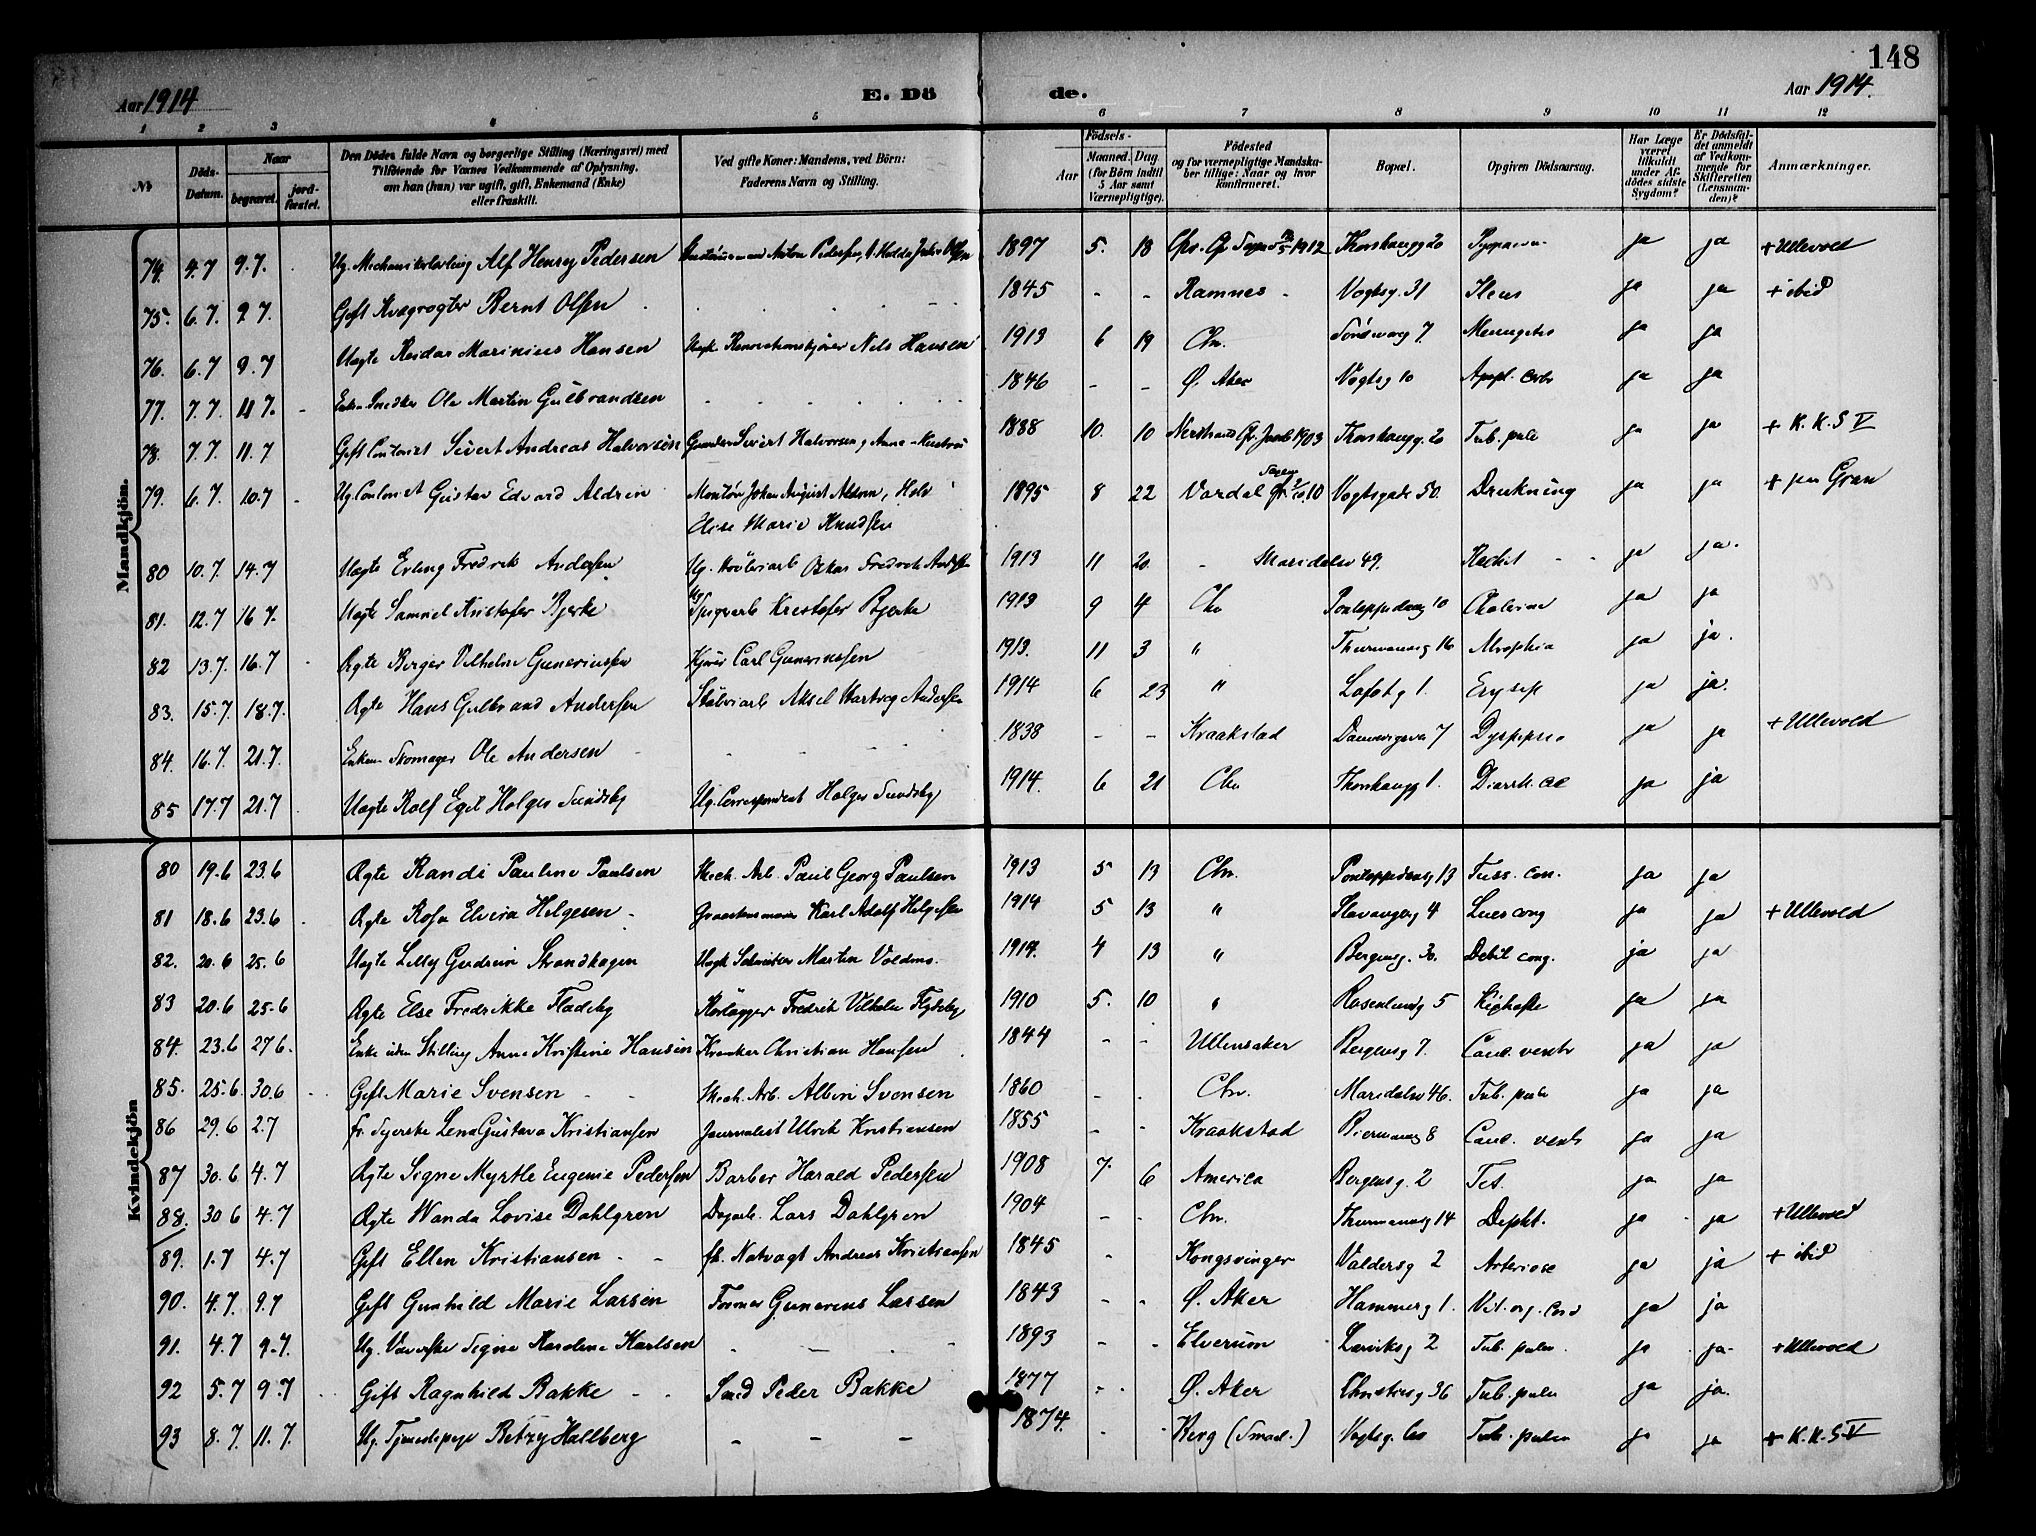 148
Aar 1914
E. Dö
de.
Aar 1914.
1 2 3 4 5 6 7 8 9 10 11 12
№
Döds-Datum.
Naar
begravet.
jord-fæstet.
Den Dödes fulde Navn og borgerlige Stilling (Næringsvei) med
Tilföiende for Voxnes Vedkommende af Oplysning,
om han (hun) var ugift, gift, Enkemand (Enke)
eller fraskilt.
Ved gifte Koner: Mandens, ved Börn:
Faderens Navn og Stilling.
Födsels-
Aar
Maaned. Dag.
(for Börn indtil
5 Aar samt
Værnepligtige).
Födested
og for værnepligtige Mandska-
ber tillige: Naar og hvor
konfirmeret.
Bopæl.
Opgiven Dödsaarsag.
Har Læge
været
tilkaldt
under Af-
dödes sidste
Sygdom?
Er Dödsfal-
det anmeldt
af Vedkom-
mende for
Skifteretten
(Lensman-
den)?
Anmærkninger.
Mandkjön.
74. 4.7 9.7. Ug. Alf Henry Pedersen 1897 5. 18 1912 Thorshaugg 20 ja ja + Ullevold
75. 6.7. 9.7. Gift Bernt Olsen 1845 - - Ramnes Vogtsg. 31 Ileus ja ja + ibid
76. 6.7 9.7 Uægte Reidar Marinius Hansen Nils Hansen 1913 6 19 Chr. 7. ja ja
77. 7.7. 11 7. Enkem Snedker Ole Martin Gulbrandsen 1846 - - Ø. Aker Vogtsg 10 Apopl. cerb ja ja
78. 7.7. 11.7 Gift Contorist Sivert Andreas Halvorsen Sivert Halvorsen 1888 10. 10 1903 Thorshaugg. 20 Tub. pulm ja ja + K.K.S V
79. 6.7. 10.7 Ug. Contorist Gustav Edvard Aldrin Montör Johan August Aldrin, 1895 8 22 Vardal 10 Vogtsgade 50. Drukning ja ja + paa Gran
Elise Marie Knudsen
80 10.7. 14.7 Uægte Erling Fredrik Andersen Ug. Oskar Fredrik Andersen 1913 11 20 - Maridalsv 49. Rachit ja ja.
81. 12.7 16 7. Uægte Samuel Kristofer Bjerke Kristofer Bjerke 1913 9 4 Chr Pontoppidansg 10 Cholerine ja ja
82 13.7. 16.7 Ægte Birger Vilhelm Guneriussen Kjører Carl Gunerinssen 1913. 11 3 " Thurmannsg 16 Atrophia ja ja.
83. 15.7 18.7. Ægte Hans Gulbrand Andersen Aksel Hartvig Andersen 1914 6 23 " Lofotg 1. Erysip ja ja.
84. 16.7. 21.7. Enkem Skomager Ole Andersen 1838 - - Kraakstad 7 Dyspepsia ja ja + Ullevold
85 17.7 21.7 Uægte Rolf Egil Holger Sundsby Ug. Correspondent Holger Sundsby 1914. 6 21 Chr Thorshaugg 1. Diarrh. ac ja ja
Kvindekjön
80 19.6 23.6 Ægte Randi Pauline Paulsen Mech. Arb. Paul Georg Paulsen 1913 5 13 Chr. Pontoppidansg 13 Tuss. con. ja ja
81 18.6 23.6 Ægte Rosa Elvira Helgesen Karl Adolf Helgesen 1914 5 13 " Stavangerg 4 Lues cong ja ja + Ullevold
82. 20.6 25.6 Uægte Lilly Gudrun Strandhagen Martin Voldmo. 1914. 4 13 " Bergensg. 30. Debil cong. ja ja
83 20.6 25.6 Ægte Else Fredrikke Fladeby Rørlægger Fredrik Vilhelm Fladeby 1910 5. 10 " Rosenlundg 5 Kighoste ja ja
84. 23.6 27 6. Enke uden Stilling Anna Kristine Hansen Christian Hansen 1844 - - Ullensaker Bergensg 7. Canc. ventr ja ja
85. 25.6. 30.6 Gift Marie Svensen Mech. Arb. Albin Svensen 1860 - - Chr. Maridalsv 46. Tub. pulm ja ja
86 29.6 2.7 fr. Syerske Lena Gustava Kristiansen Journalist Ulrik Kristiansen 1855 - - Kraakstad Biermannsg 8 Canc. ventr ja ja
87 30.6 4.7 Ægte Signe Myrtle Eugenie Pedersen Barber Harald Pedersen 1908 7. 6 America Bergensg. 2 Tet. ja ja
88. 30 6 4.7 Ægte Wanda Lovise Dahlgren Dagarb. Lars Dahlgren 1904 - - Chr. Thurmannsg 14 Depht. ja ja + Ullevold
89. 1.7 4.7 Gift Ellen Kristiansen fh. Natvagt Andreas Kristiansen 1845 - Kongsvinger Valdersg 2 Arteriosc ja ja + ibid
90. 4.7. 9.7 Gift Gunhild Marie Larsen Former Gunerius Larsen 1843 - - Ø. Aker Hammerg 1. Vit. org. cord ja ja
91. 4.7 9.7. Ug. Væverske Signe Karoline Karlsen 1893 - - Elverum Larviksg 2 Tub. pulm ja ja + Ullevold
92 5.7 9.7 Gift Ragnhild Bakke Smed Peder Bakke 1877 - - Ø. Aker Christiesg 36 Tub. pulm ja ja.
93 8.7 11.7. Ug. Tjenestepige Betzy Hallberg 1874. - - Berg (Smaal.) Vogtsg. 60 Tub. pulm ja ja + K.K.S.V